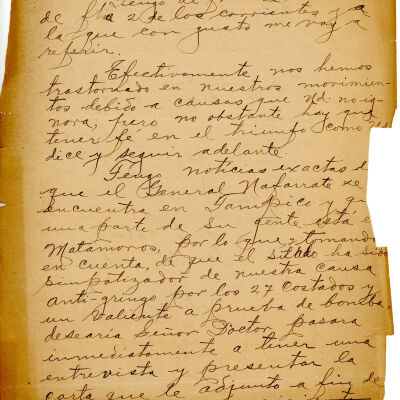 de fha 2 de los corrientes y a
la que con gusto me voy a
referir.
Efectivamente nos hemos
trastornado en nuestros movimien-
tos debido a causas que Ud. no ig-
nora, pero no obstante hay que
tener fé en el triunfo como Ud
dice y seguir adelante.
Tengo noticias exactas d
que el General Nafarrate se
encuentra en Tampico y q
una parte de su gente está e
Matamoros, por lo que y tomando
en cuenta, de que el ha sido
simpatizador de nuestra causa
anti-gringo por los 27 costados y
un valiente a prueba de bomba.
desearía Señor Doctor, pasara
inmediatamente a tener una
entrevista y presentar la
carta que le adjunto a fin de